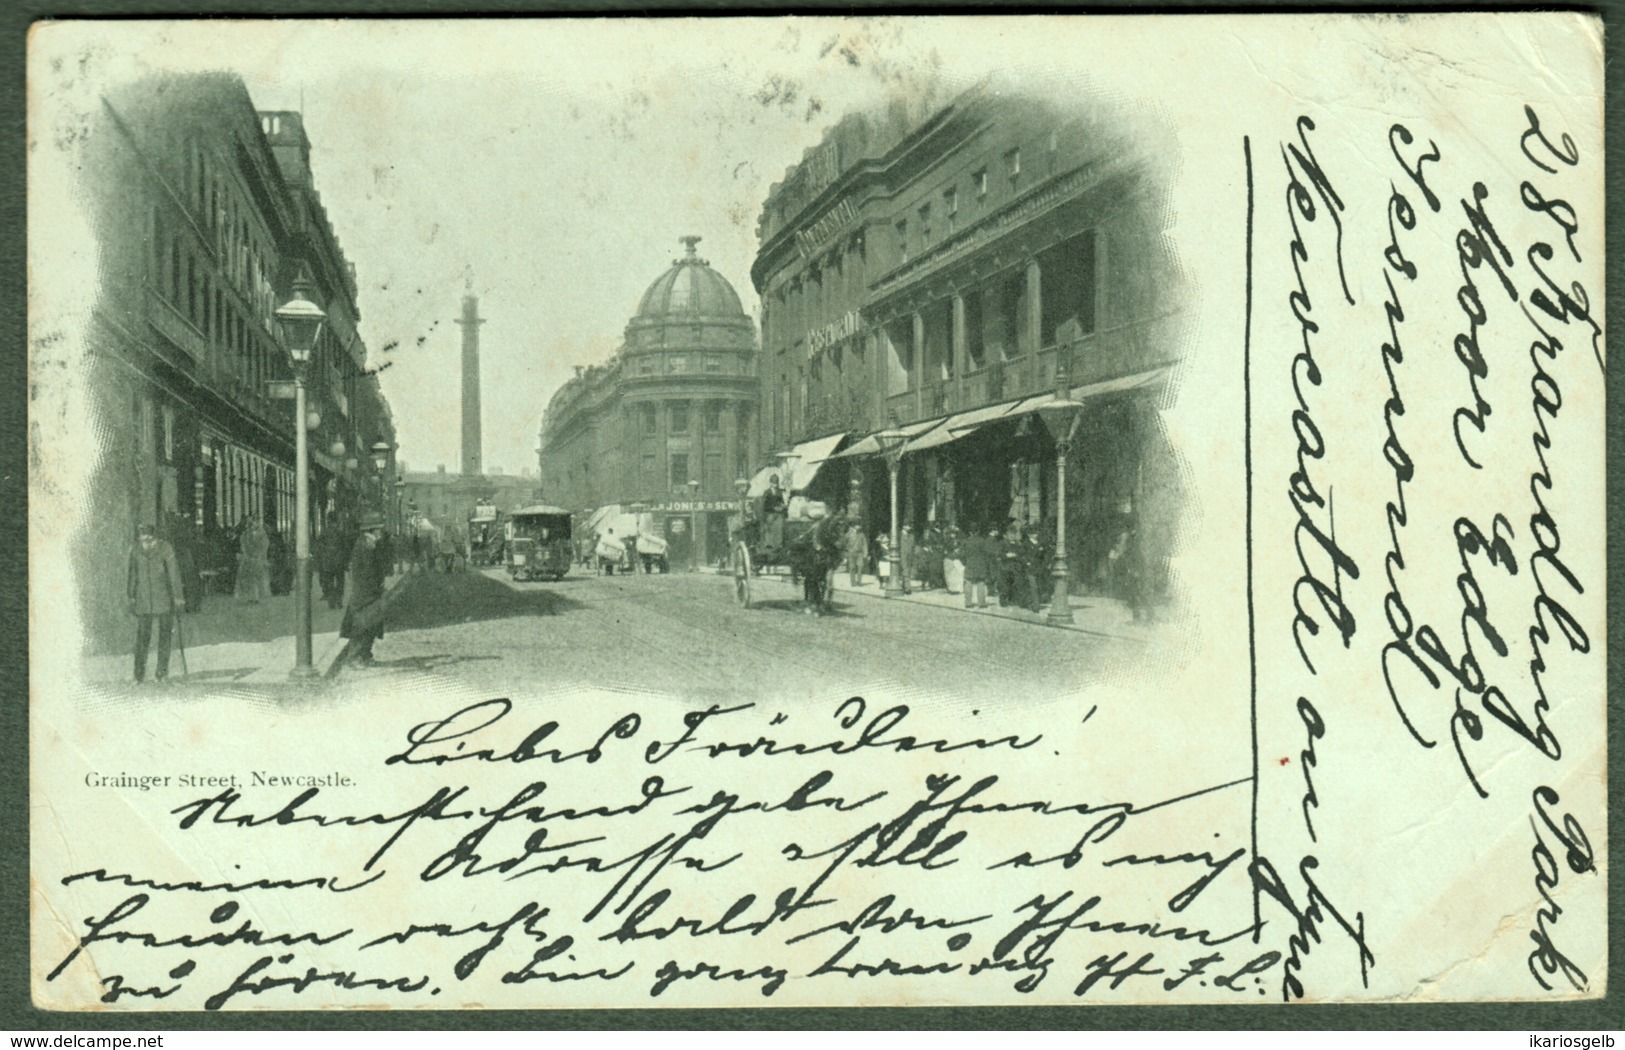 JONES' SEW
Grainger Street, Newcastle.
Liebes Fräulein!
Nebenstehend gebe Ihnen
meine Adresse & soll es mich
freuen recht bald von Ihnen
zu hören. Bin ganz traurig
28 Brandling Park
Moor Edge
Jesmond
Newcastle on Tyne
delcampe.net
ikariosgelb